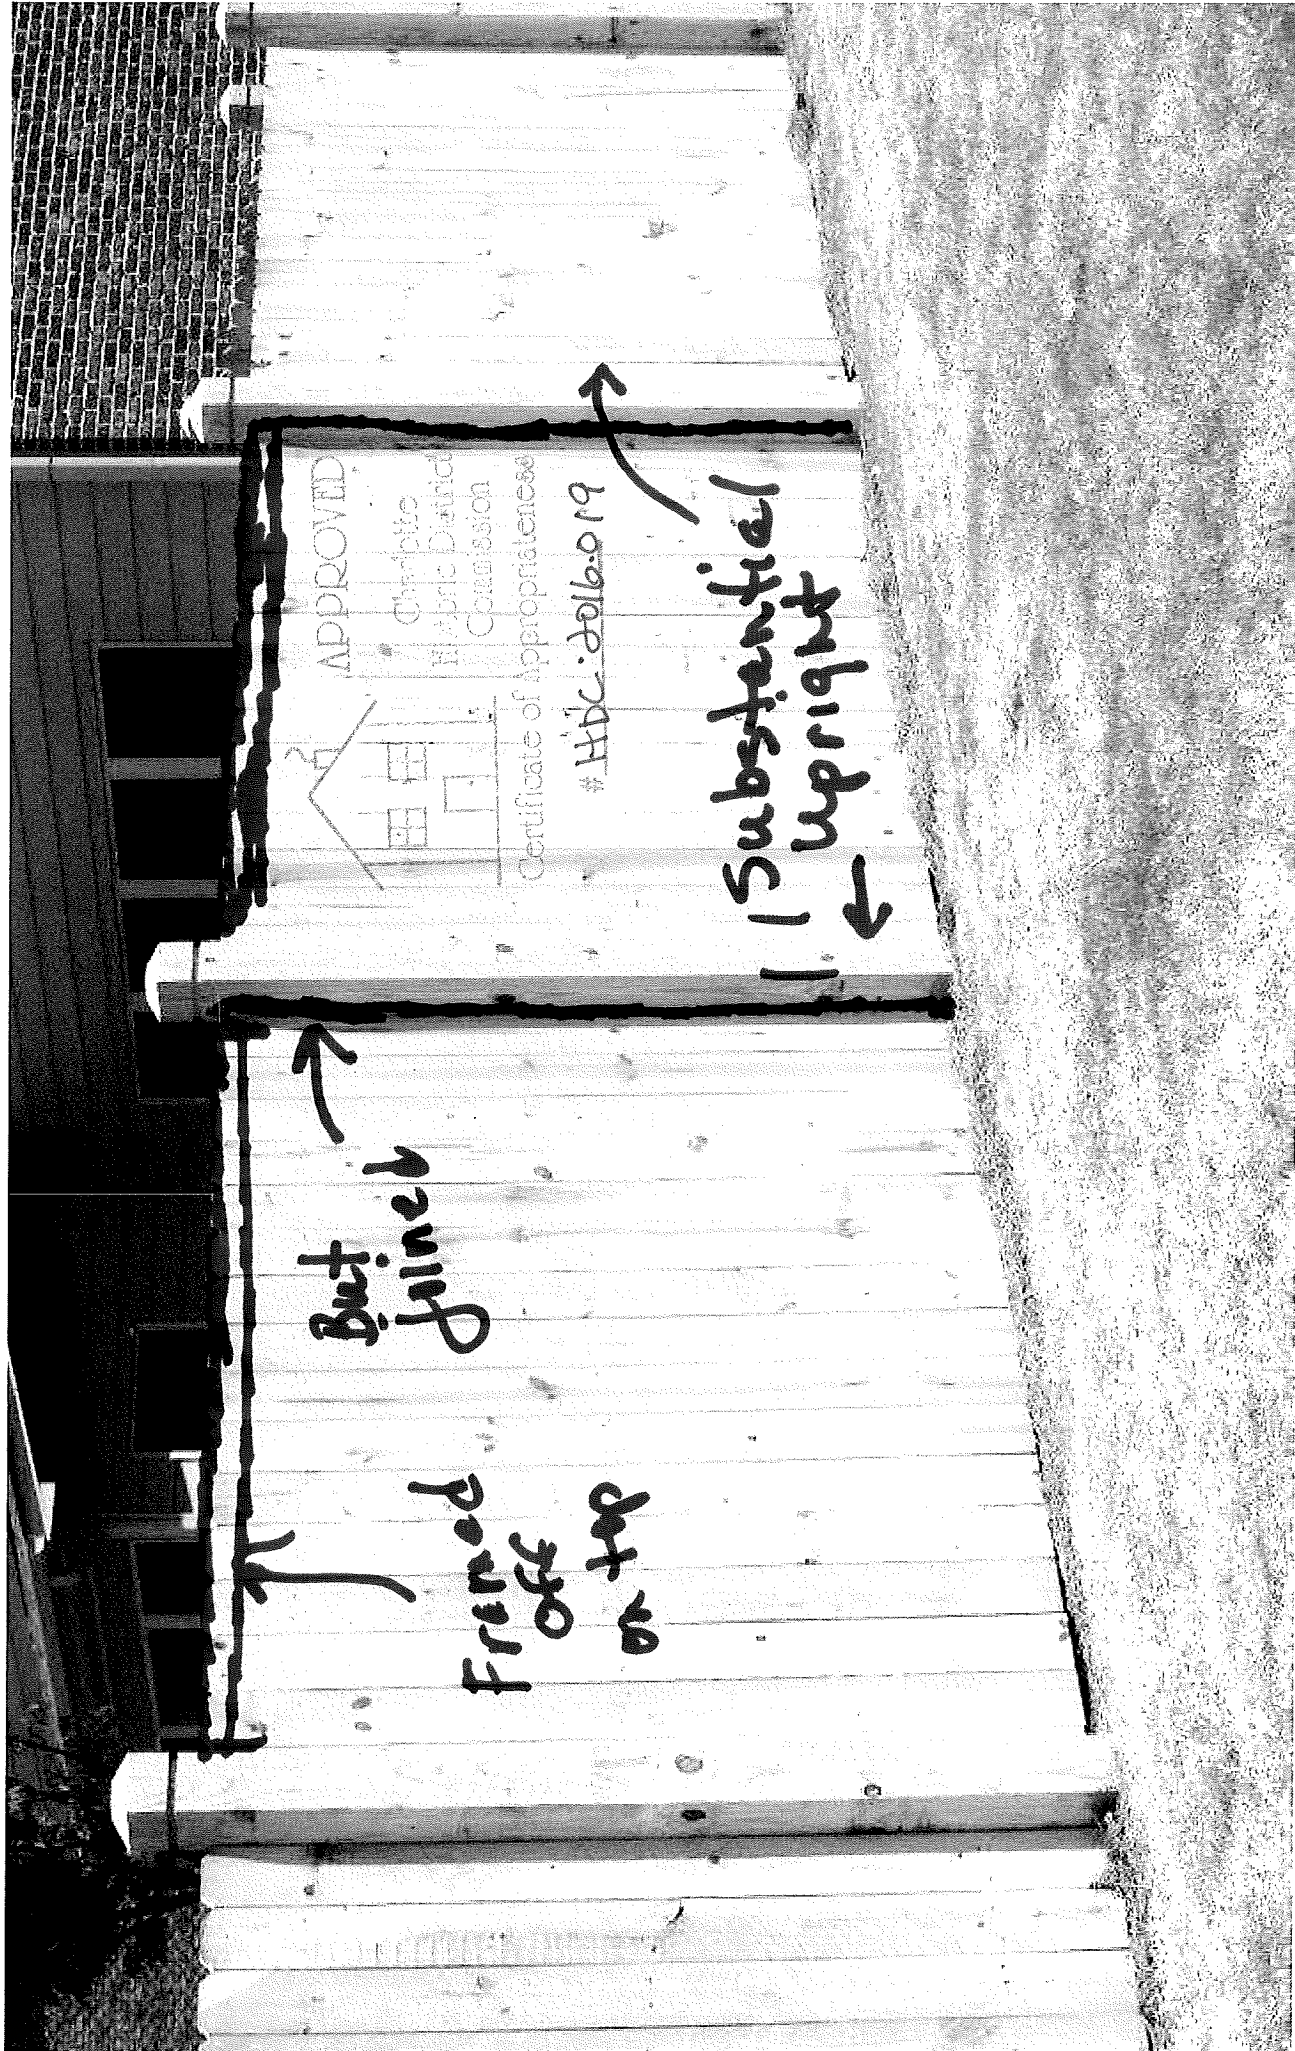 APPROVED
Charlotte
Historic District
Commission
Certificate of Appropriateness
# HDC.2016.019
Substantial
upright
But
jined
Framed
off
on top